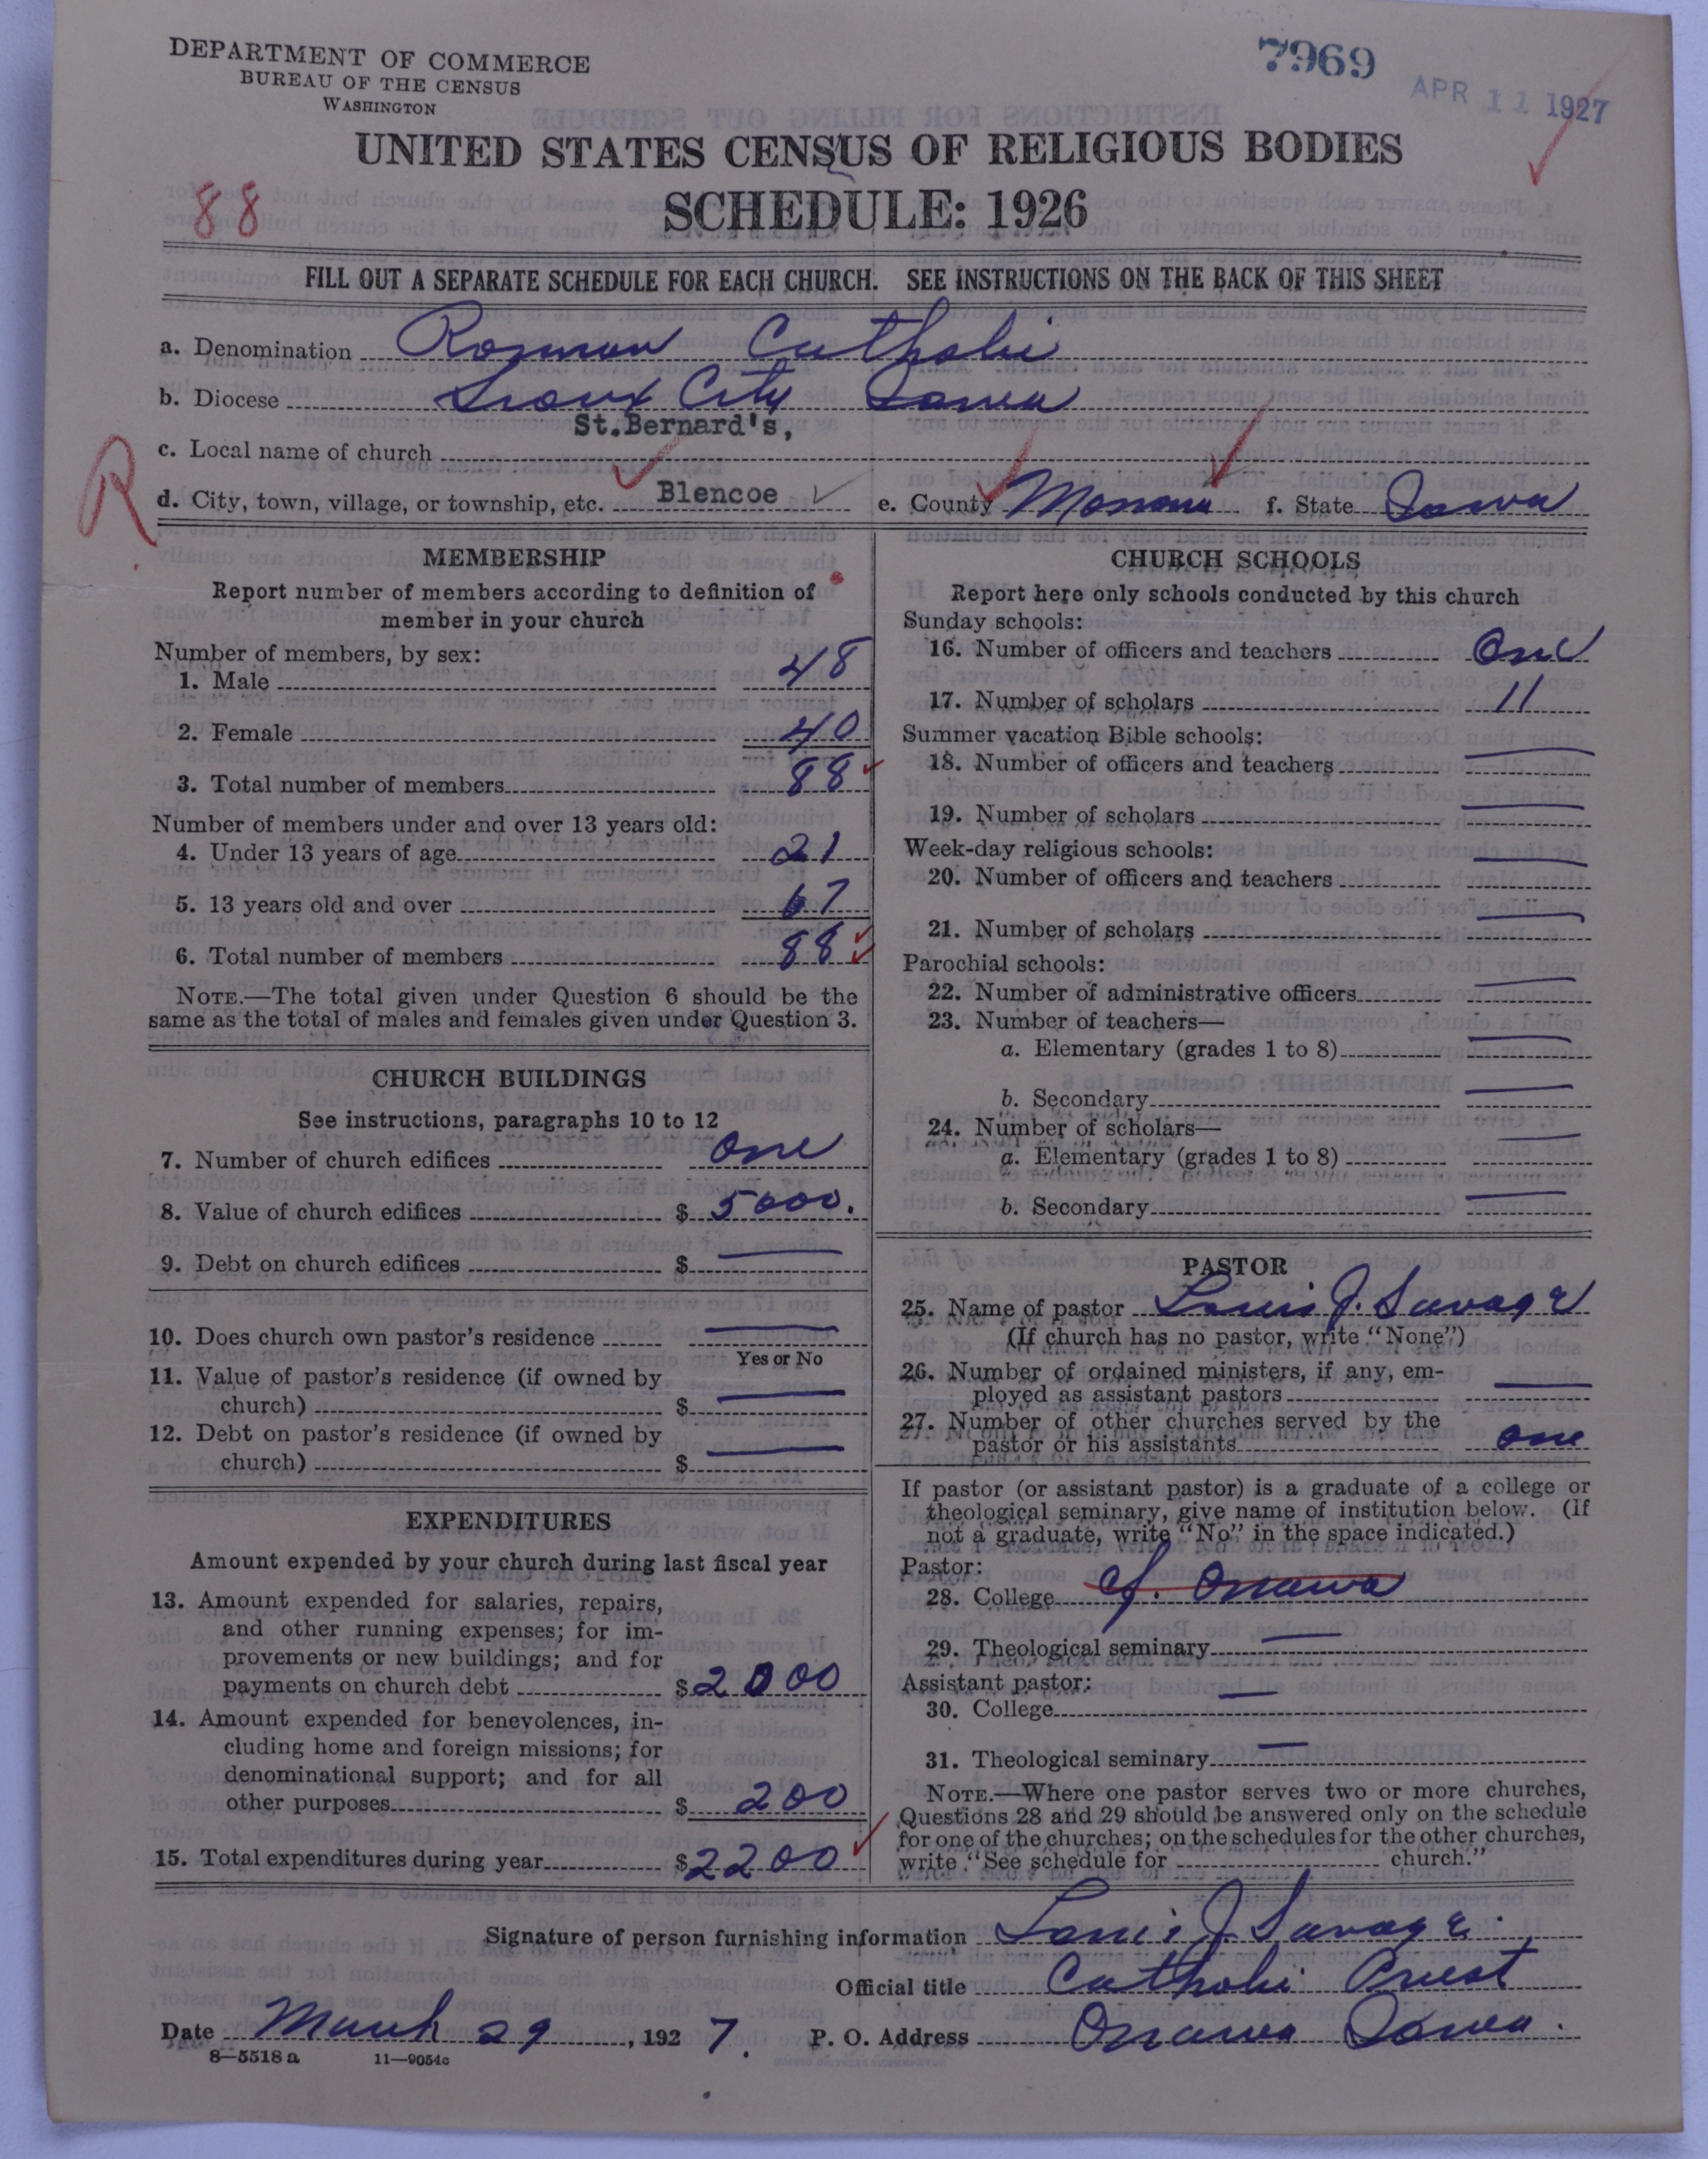 DEPARTMENT OF COMMERCE
BUREAU OF THE CENSUS
WASHINGTON
7969
APR 11 1927
UNITED STATES CENSUS OF RELIGIOUS BODIES
SCHEDULE: 1926
88
FILL OUT A SEPARATE SCHEDULE FOR EACH CHURCH. SEE INSTRUCTIONS ON THE BACK OF THIS SHEET
a. Denomination Roman Catholic
b. Diocese Sioux City Iowa
St.Bernard's,
c. Local name of church
R
d. City, town, village, or township, etc. Blencoe e. County Monona f. State Iowa
MEMBERSHIP
Report number of members according to definition of
member in your church
Number of members, by sex:
1. Male 48
2. Female 40
3. Total number of members 88
Number of members under and over 13 years old:
4. Under 13 years of age 21
5. 13 years old and over 67
6. Total number of members 88
NOTE.—The total given under Question 6 should be the
same as the total of males and females given under Question 3.
CHURCH BUILDINGS
See instructions, paragraphs 10 to 12
7. Number of church edifices one
8. Value of church edifices $ 5000.
9. Debt on church edifices $ —
10. Does church own pastor's residence —
Yes or No
11. Value of pastor's residence (if owned by
church) $ —
12. Debt on pastor's residence (if owned by
church) $ —
EXPENDITURES
Amount expended by your church during last fiscal year
13. Amount expended for salaries, repairs,
and other running expenses; for im-
provements or new buildings; and for
payments on church debt $ 2000
14. Amount expended for benevolences, in-
cluding home and foreign missions; for
denominational support; and for all
other purposes $ 200
15. Total expenditures during year $ 2200
CHURCH SCHOOLS
Report here only schools conducted by this church
Sunday schools:
16. Number of officers and teachers One
17. Number of scholars 11
Summer vacation Bible schools:
18. Number of officers and teachers —
19. Number of scholars —
Week-day religious schools:
20. Number of officers and teachers —
21. Number of scholars —
Parochial schools:
22. Number of administrative officers —
23. Number of teachers—
a. Elementary (grades 1 to 8) —
b. Secondary —
24. Number of scholars—
a. Elementary (grades 1 to 8) —
b. Secondary —
PASTOR
25. Name of pastor Louis J. Savage
(If church has no pastor, write "None")
26. Number of ordained ministers, if any, em-
ployed as assistant pastors —
27. Number of other churches served by the
pastor or his assistants one
If pastor (or assistant pastor) is a graduate of a college or
theological seminary, give name of institution below. (If
not a graduate, write "No" in the space indicated.)
Pastor:
28. College cf. Onawa
29. Theological seminary —
Assistant pastor:
30. College —
31. Theological seminary —
NOTE.—Where one pastor serves two or more churches,
Questions 28 and 29 should be answered only on the schedule
for one of the churches; on the schedules for the other churches,
write "See schedule for church."
Signature of person furnishing information Louis J. Savage.
Official title Catholic Priest
Date March 29, 1927. P. O. Address Onawa Iowa.
8—5518 a 11—9054c